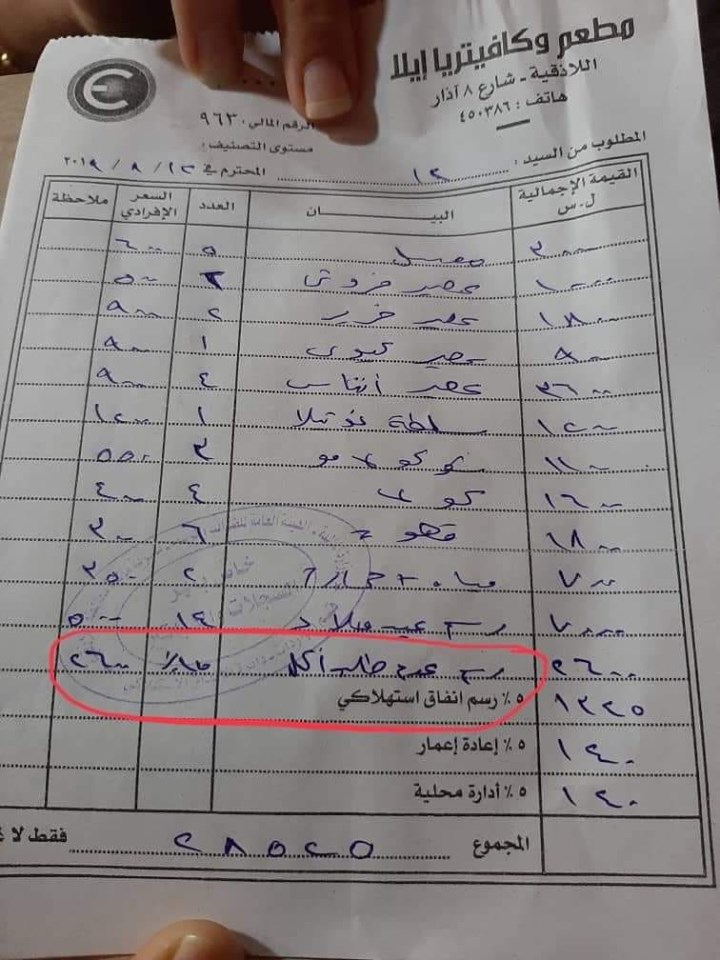 مطعم وكافيتريا إيلا
اللاذقية - شارع ٨ آذار
هاتف : ٤٥٠٣٨٦
الرقم المالي: ٩٦٣٠
مستوى التصنيف:
المطلوب من السيد : ١٢ المحترم في ١٣ / ٨ / ٢٠١٩
القيمة الإجمالية ل.س البيـــان العدد السعر الإفرادي ملاحظة
٣٠٠٠ معسل ٥ ٦٠٠
١٠٠٠ عصير ٢ ٥٠٠
١٨٠٠ عصير ٢ ٩٠٠
٩٠٠ عصير كيوي ١ ٩٠٠
٣٦٠٠ عصير أناناس ٤ ٩٠٠
١٢٠٠ سلطة ١ ١٢٠٠
١١٠٠ ٢ ٥٥٠
١٦٠٠ ٤ ٤٠٠
١٨٠٠ قهوة ٦ ٣٠٠
٧٠٠ مياه + ٢ ٣٥٠
٧٠٠٠ رسم عيد ميلاد ١٤ ٥٠٠
٢٦٠٠ رسم عدم طلب أكل ٢٦٠٠
١٢٢٥ ٥٪ رسم انفاق استهلاكي
١٤٠ ٥٪ إعادة إعمار
١٤٠ ٥٪ أدارة محلية
المجموع ٢٨٥٢٥ فقط لا